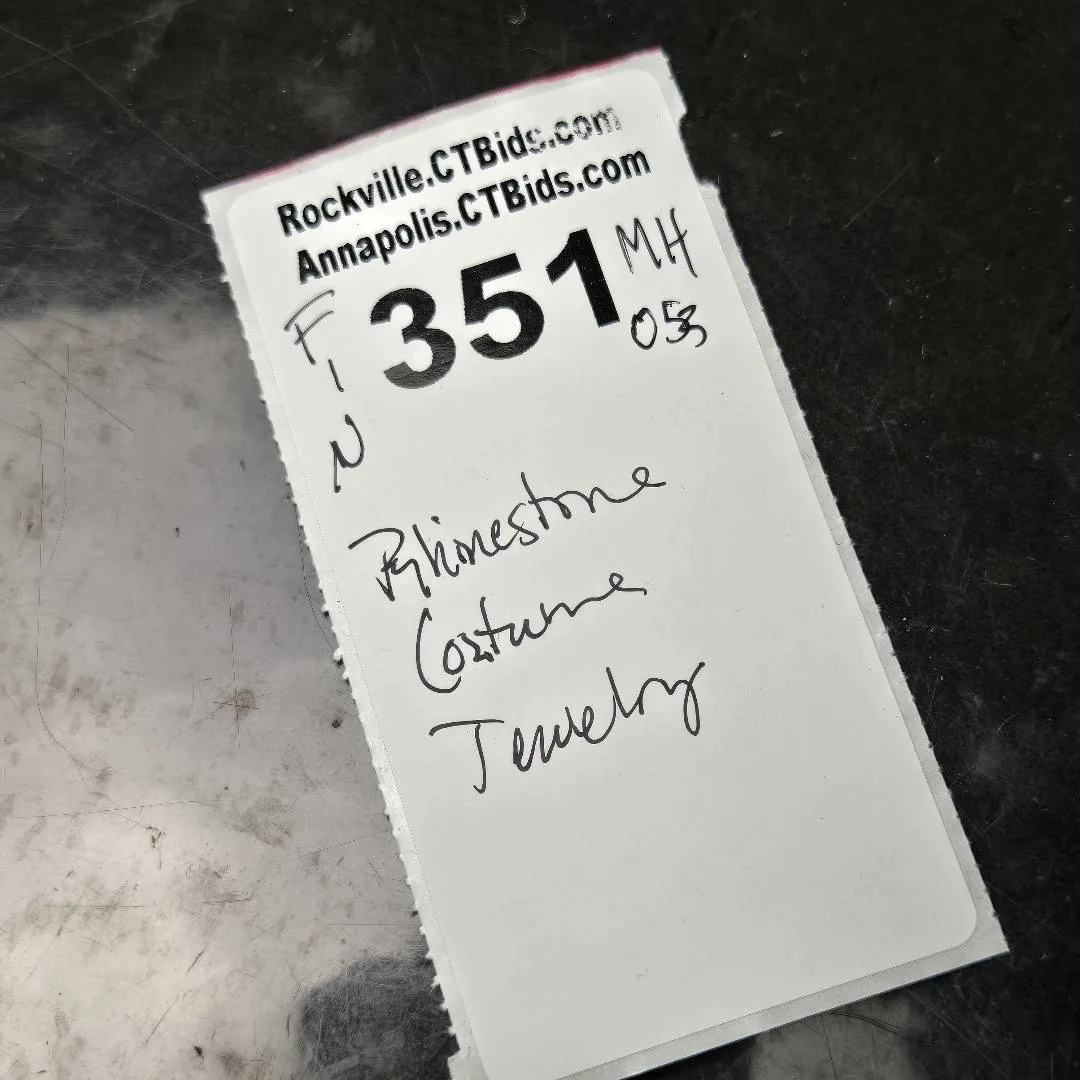 Rockville.CTBids.com
Annapolis.CTBids.com
FIN 351 MH
053
Rhinestone
Costume
Jewelry